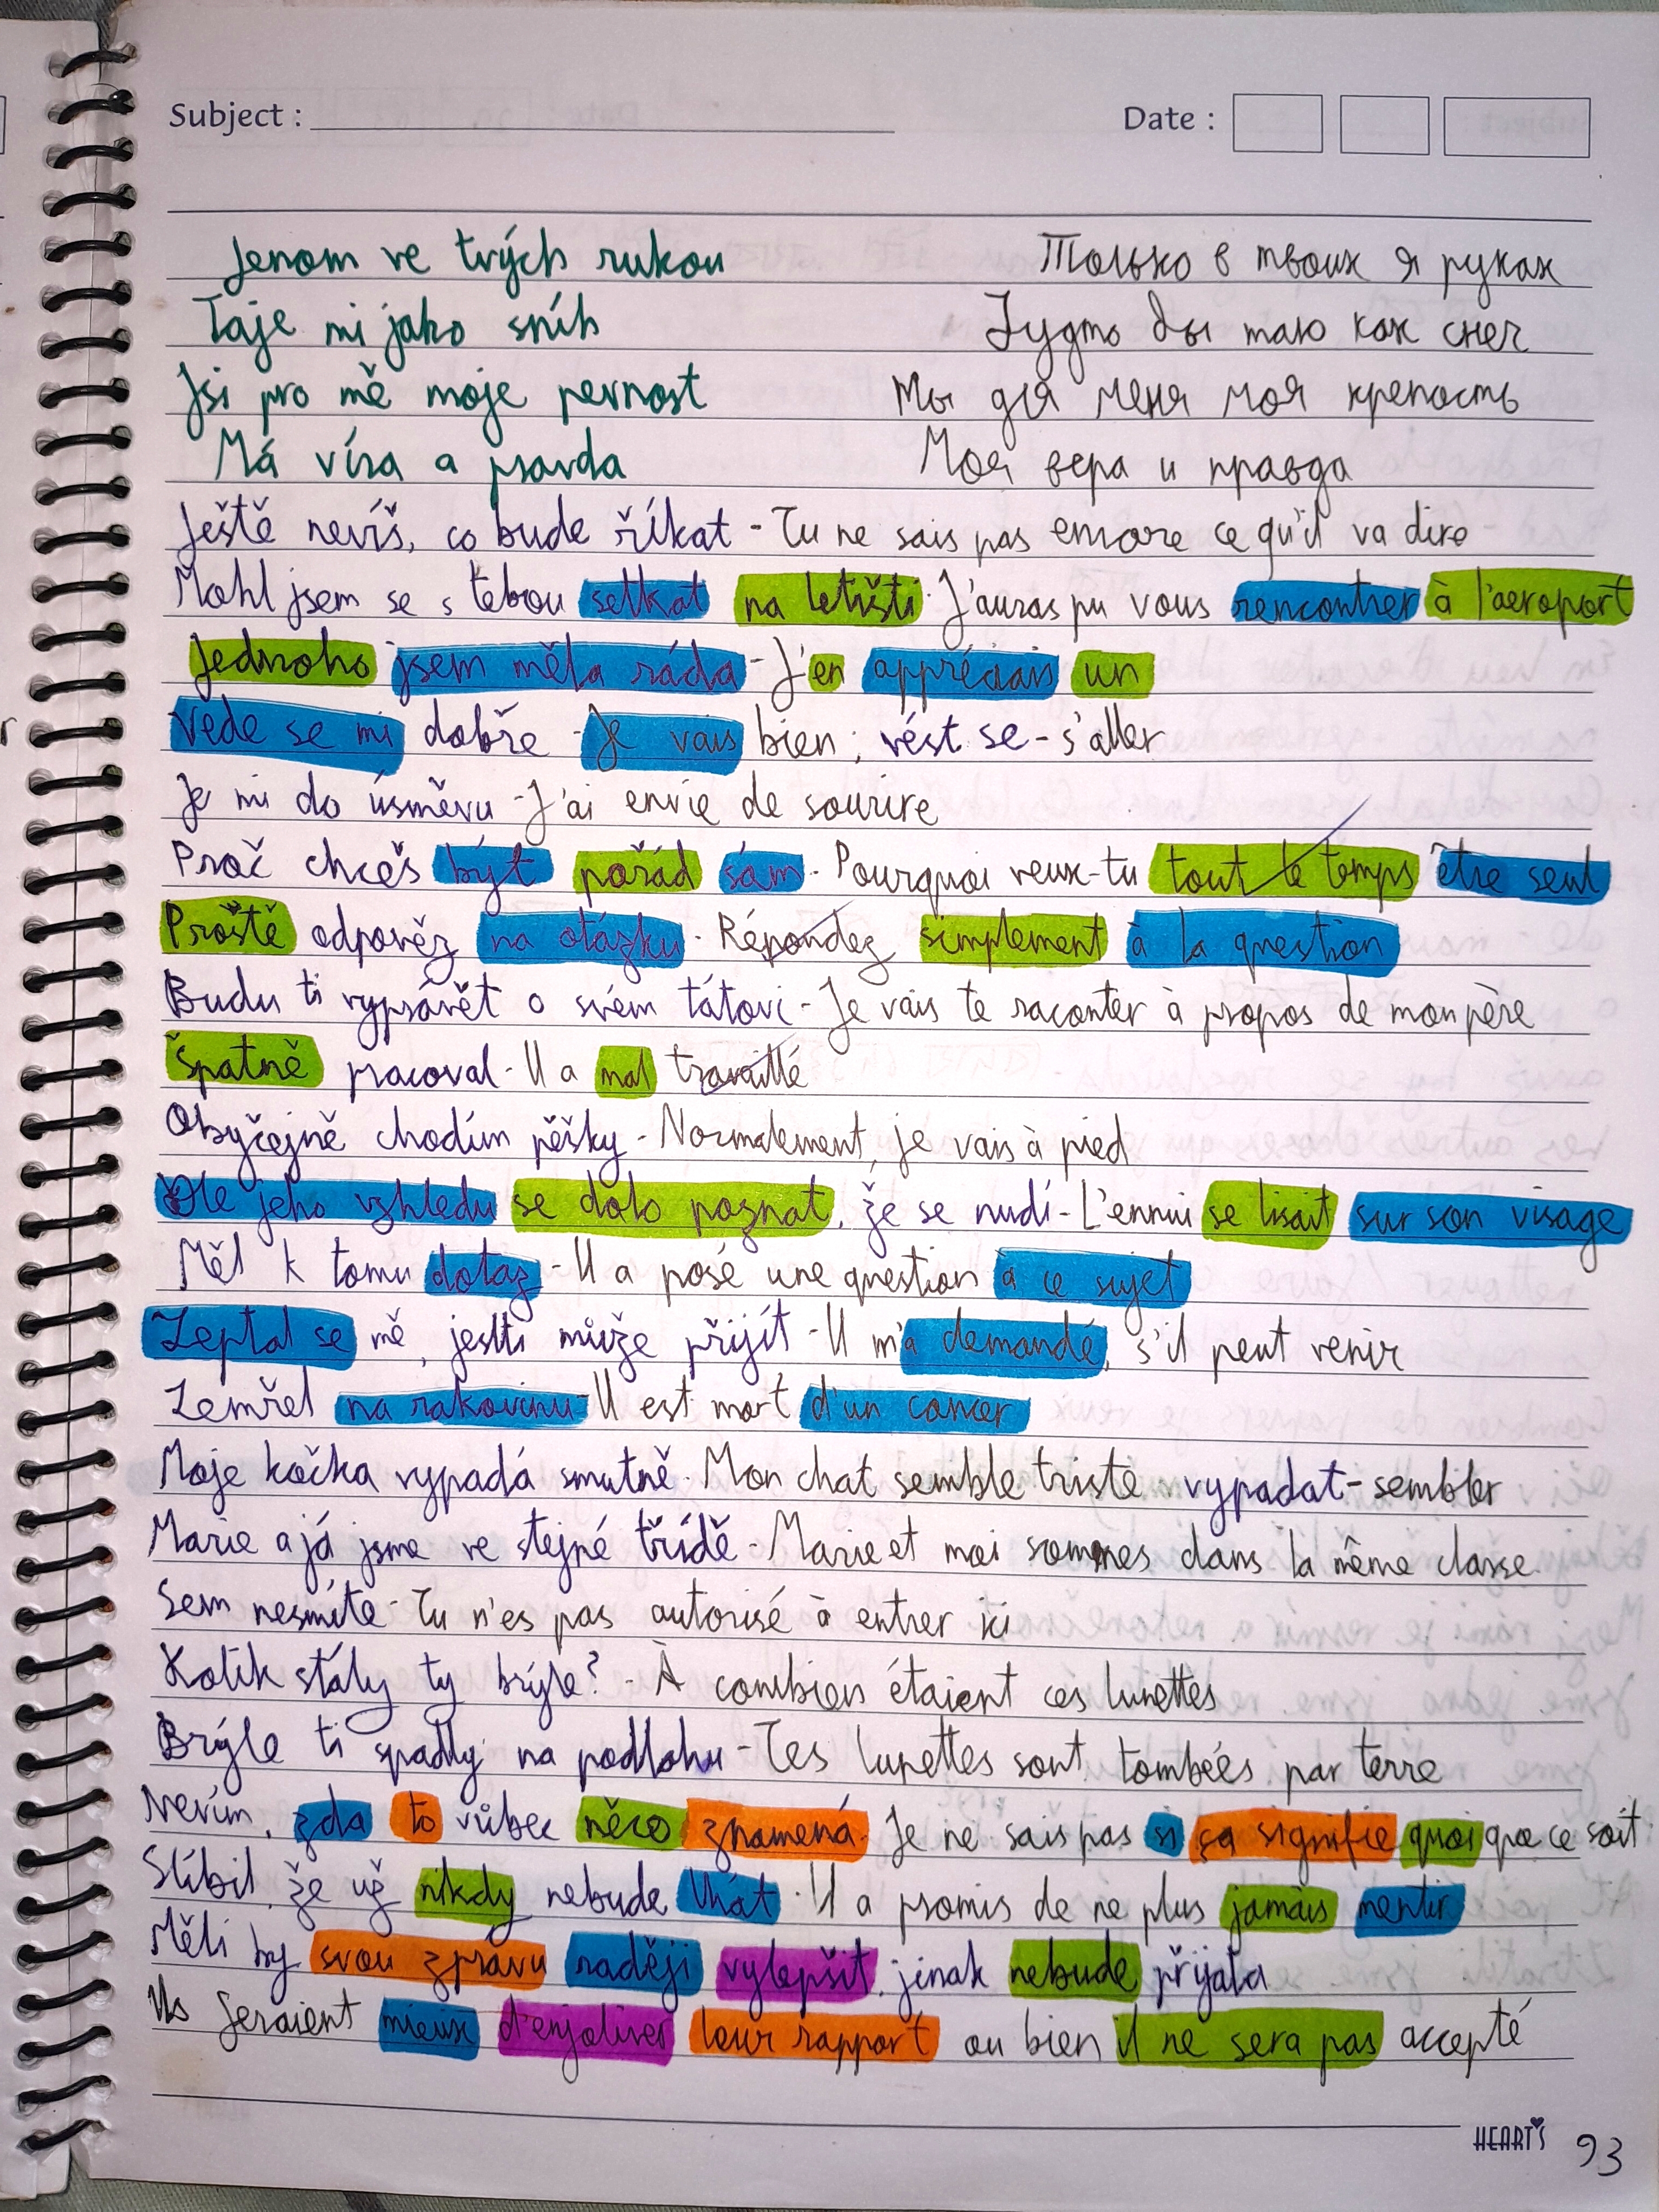 Subject :
Date :
Jenom ve tvých rukou Только в твоих я руках
Taje mi jako sníh Будто бы таю как снег
Jsi pro mě moje pevnost Ты для меня моя крепость
Má víra a pravda Моя вера и правда
Ještě nevíš, co bude říkat - Tu ne sais pas encore ce qu'il va dire
Mohl jsem se s tebou setkat na letišti - J'auras pu vous rencontrer à l'aeroport
Jednoho jsem měla ráda - J'en appréciais un
Vede se mi dobře - Je vais bien; vést se - s'aller
Je mi do úsměvu - J'ai envie de sourire
Proč chceš být pořád sám - Pourquoi veux-tu tout le temps être seul
Prostě odpověz na otázku - Répondez simplement à la question
Budu ti vyprávět o svém tátovi - Je vais te raconter à propos de mon père
Špatně pracoval - Il a mal travaillé
Obyčejně chodím pěšky - Normalement, je vais à pied
Dle jeho vzhledu se dalo poznat, že se nudí - L'ennui se lisait sur son visage
Měl k tomu dotaz - Il a posé une question à ce sujet
Zeptal se mě, jestli může přijít - Il m'a demandé, s'il peut venir
Zemřel na rakovinu - Il est mort d'un cancer
Moje kočka vypadá smutně - Mon chat semble triste vypadat - sembler
Marie a já jsme ve stejné třídě - Marie et moi sommes dans la même classe
Sem nesmíte - Tu n'es pas autorisé à entrer ici
Kolik stály ty brýle? - À combien étaient ces lunettes
Brýle ti spadly na podlahu - Tes lunettes sont tombées par terre
Nevím, zda to vůbec něco znamená - Je ne sais pas si ça signifie quoi que ce soit
Slíbil, že už nikdy nebude lhát - Il a promis de ne plus jamais mentir
Měli by svou zprávu raději vylepšit, jinak nebude přijata
Ils feraient mieux d'enjoliver leur rapport ou bien il ne sera pas accepté
HEART'S
93